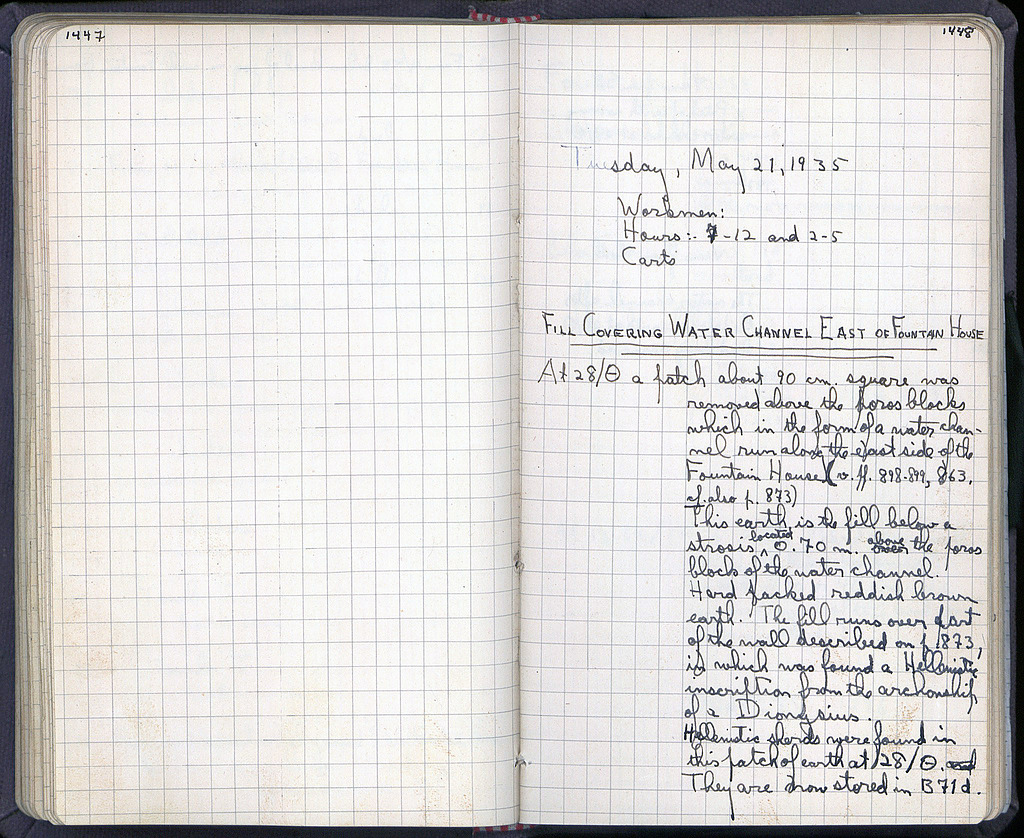 1447
1448
Tuesday, May 21, 1935
Workmen:
Hours: 7-12 and 2-5
Carts
FILL COVERING WATER CHANNEL EAST OF FOUNTAIN HOUSE
At 28/Θ a patch about 90 cm. square was
removed above the poros blocks
which in the form of a water chan-
nel run along the east side of the
Fountain House (v. pp. 898-899, 863,
cf. also p. 873)
This earth is the fill below a
strosis located 0.70 m. above the poros
blocks of the water channel.
Hard packed reddish brown
earth. The fill runs over part
of the wall described on p. 873,
in which was found a Hellenistic
inscription from the archonship
of a Dionysius.
Hellenistic sherds were found in
this patch of earth at 28/Θ.
They are now stored in B71d.